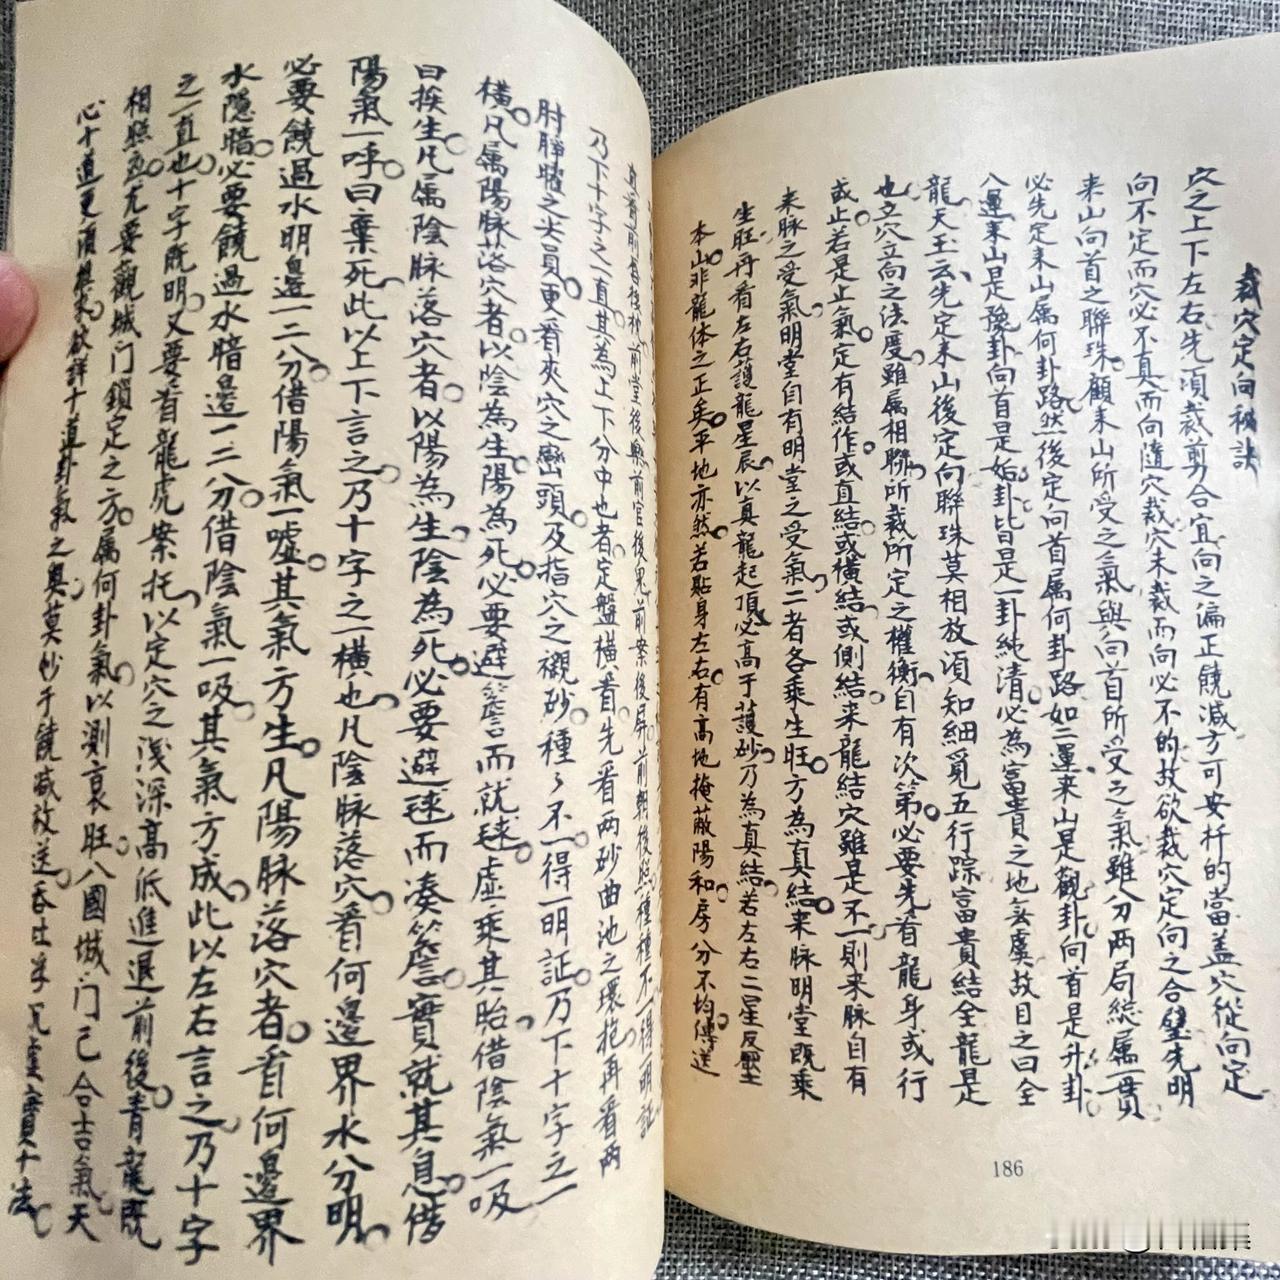 裁穴定向秘訣
穴之上下左右先須裁剪合宜向之偏正饒減方可安杆的當蓋穴從向定
向不定而穴必不真而向隨穴裁穴未裁而向必不的故欲裁穴定向之合壁先明
來山向首之聯珠顧來山所受之氣與向首所受之氣雖分兩局総属一貫
必先定来山属何卦路然後定向首属何卦路如二運来山是觀卦向首是升卦
八運来山是豫卦向首是始卦皆是一卦純清必為富貴之地無虞故目之曰全
龍天玉云先定来山後定向聯珠莫相放須知細覓五行踪富貴結全龍是
也立穴立向之法度雖属相聯所裁所定之權衡自有次第必要先看龍身或行
或止若是止氣定有結作或直結或橫結或側結来龍結穴雖是不一則来脉自有
来脉之受氣明堂自有明堂之受氣二者各乘生旺方為真結来脉明堂既乘
生旺再看左右護龍星辰以真龍起頂必高于護砂乃為真結若左右二星反壓
本山非龍体之正矣平地亦然若貼身左右有高地掩蔽陽和房分不均傳送
186
前堂後樂前官後鬼前案後屏前朝後照種種不一得一明証
乃下十字之一直其為上下分中也者定盤橫看先看兩砂曲池之環抱再看兩
肘腁曜之尖員更看夾穴之巒頭及指穴之襯砂種々不一得一明証乃下十字之一
橫凡属陽脉落穴者以陰為生陽為死必要避簷而就毬虛乘其胎借陰氣一吸
曰挨生凡属陰脉落穴者以陽為生陰為死必要避毬而湊簷實就其息借
陽氣一呼曰棄死此以上下言之乃十字之一橫也凡陰脉落穴看何邊界水分明
必要饒過水明邊一二分借陽氣一噓其氣方生凡陽脉落穴者看何邊界
水隱暗必要饒過水暗邊一二分借陰氣一吸其氣方成此以左右言之乃十字
之一直也十字既明又要看龍虎案托以定穴之淺深高低進退前後青龍既
相照應尤要觀城门鎖定之方属何卦氣以測衰旺八國城门已合吉氣天
心十道更須 欲詳十道卦氣之奧莫妙于饒減放送吞吐浮沉虛實十法